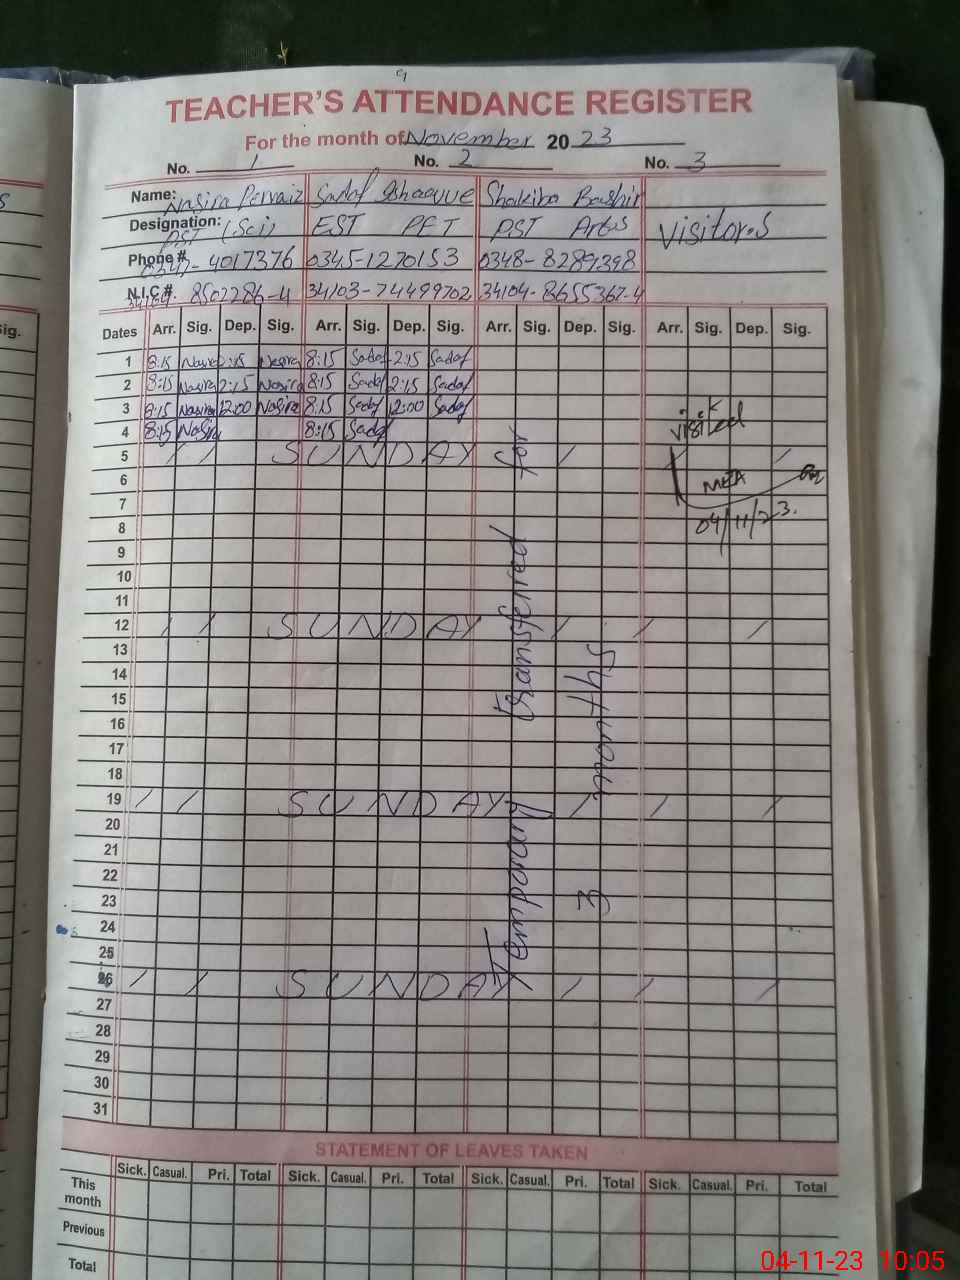 TEACHER'S ATTENDANCE REGISTER
For the month of November 2023
No. 1 No. 2 No. 3
Name: Nasira Pervaiz Sadaf Shakiba Bashir
Designation: PST (Sci) EST PET PST Arts Visitor.s
Phone # 4017376 0345-1270153 0348-8289398
N.I.C #. 8502286-4 34103-74499702 34104-8655367-4
Dates Arr. Sig. Dep. Sig. Arr. Sig. Dep. Sig. Arr. Sig. Dep. Sig. Arr. Sig. Dep. Sig.
1 8:15 Nasira 2:15 Nasira 8:15 Sadaf 2:15 Sadaf
2 8:15 Nasira 2:15 Nasira 8:15 Sadaf 2:15 Sadaf
3 8:15 Nasira 12:00 Nasira 8:15 Sadaf 12:00 Sadaf
4 8:15 Nasira 8:15 Sadaf
visited
5 SUNDAY
6
MEA
7
04/11/23.
8
9
10
11
12 SUNDAY
13
14
15
16
17
18
19 SUNDAY
20
21
22
23
24
25
26 SUNDAY
27
28
29
30
31
Temporary transferred for
3 months
STATEMENT OF LEAVES TAKEN
Sick. Casual. Pri. Total Sick. Casual. Pri. Total Sick. Casual. Pri. Total Sick. Casual. Pri. Total
This month
Previous
Total
04-11-23 10:05